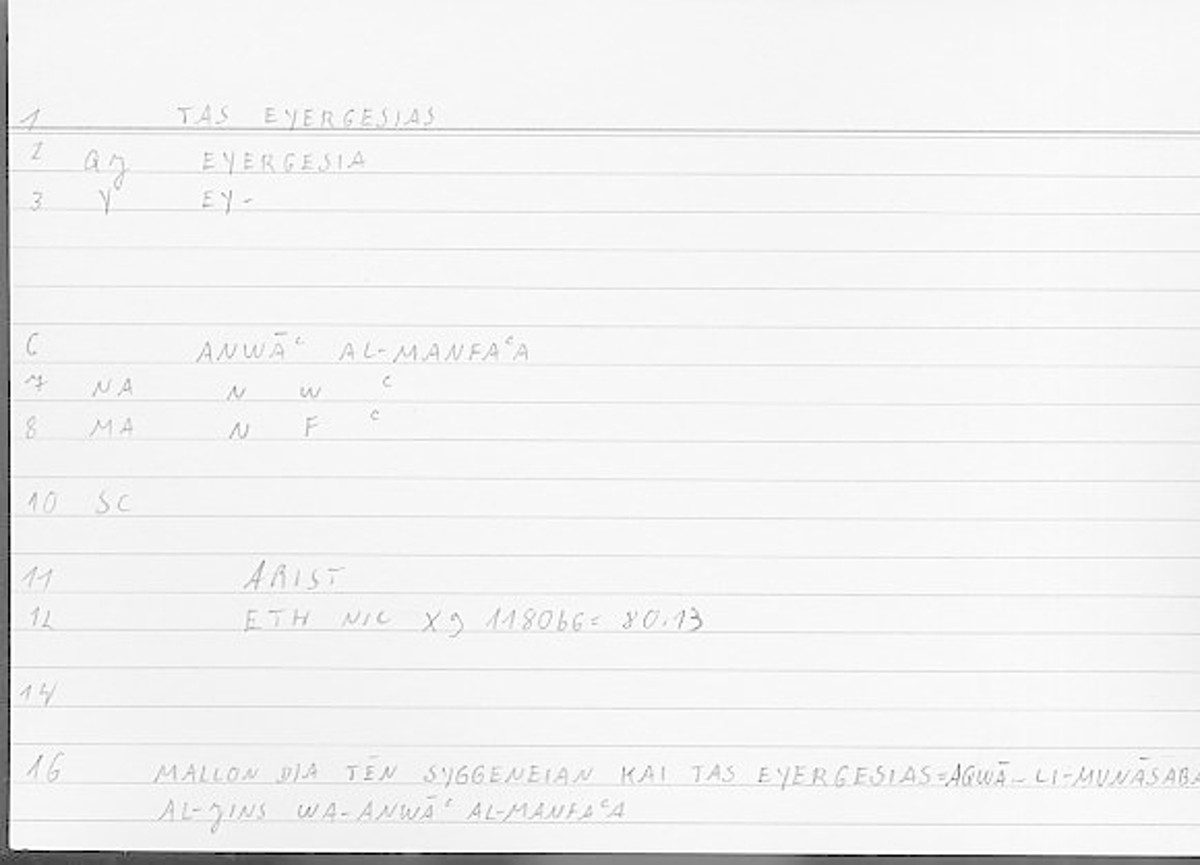 1 TAS EYERGESIAS
2 aȝ EYERGESIA
3 Y EY-
6 ANWĀᶜ AL-MANFAᶜA
7 NA N W ᶜ
8 MA N F ᶜ
10 SC
11 ARIST
12 ETH NIC X9 1180b6= 80.13
14
16 MALLON DIA TĒN SYGGENEIAN KAI TAS EYERGESIAS=AQWĀ- LI-MUNĀSABA
AL-ȝINS WA-ANWĀᶜ AL-MANFAᶜA